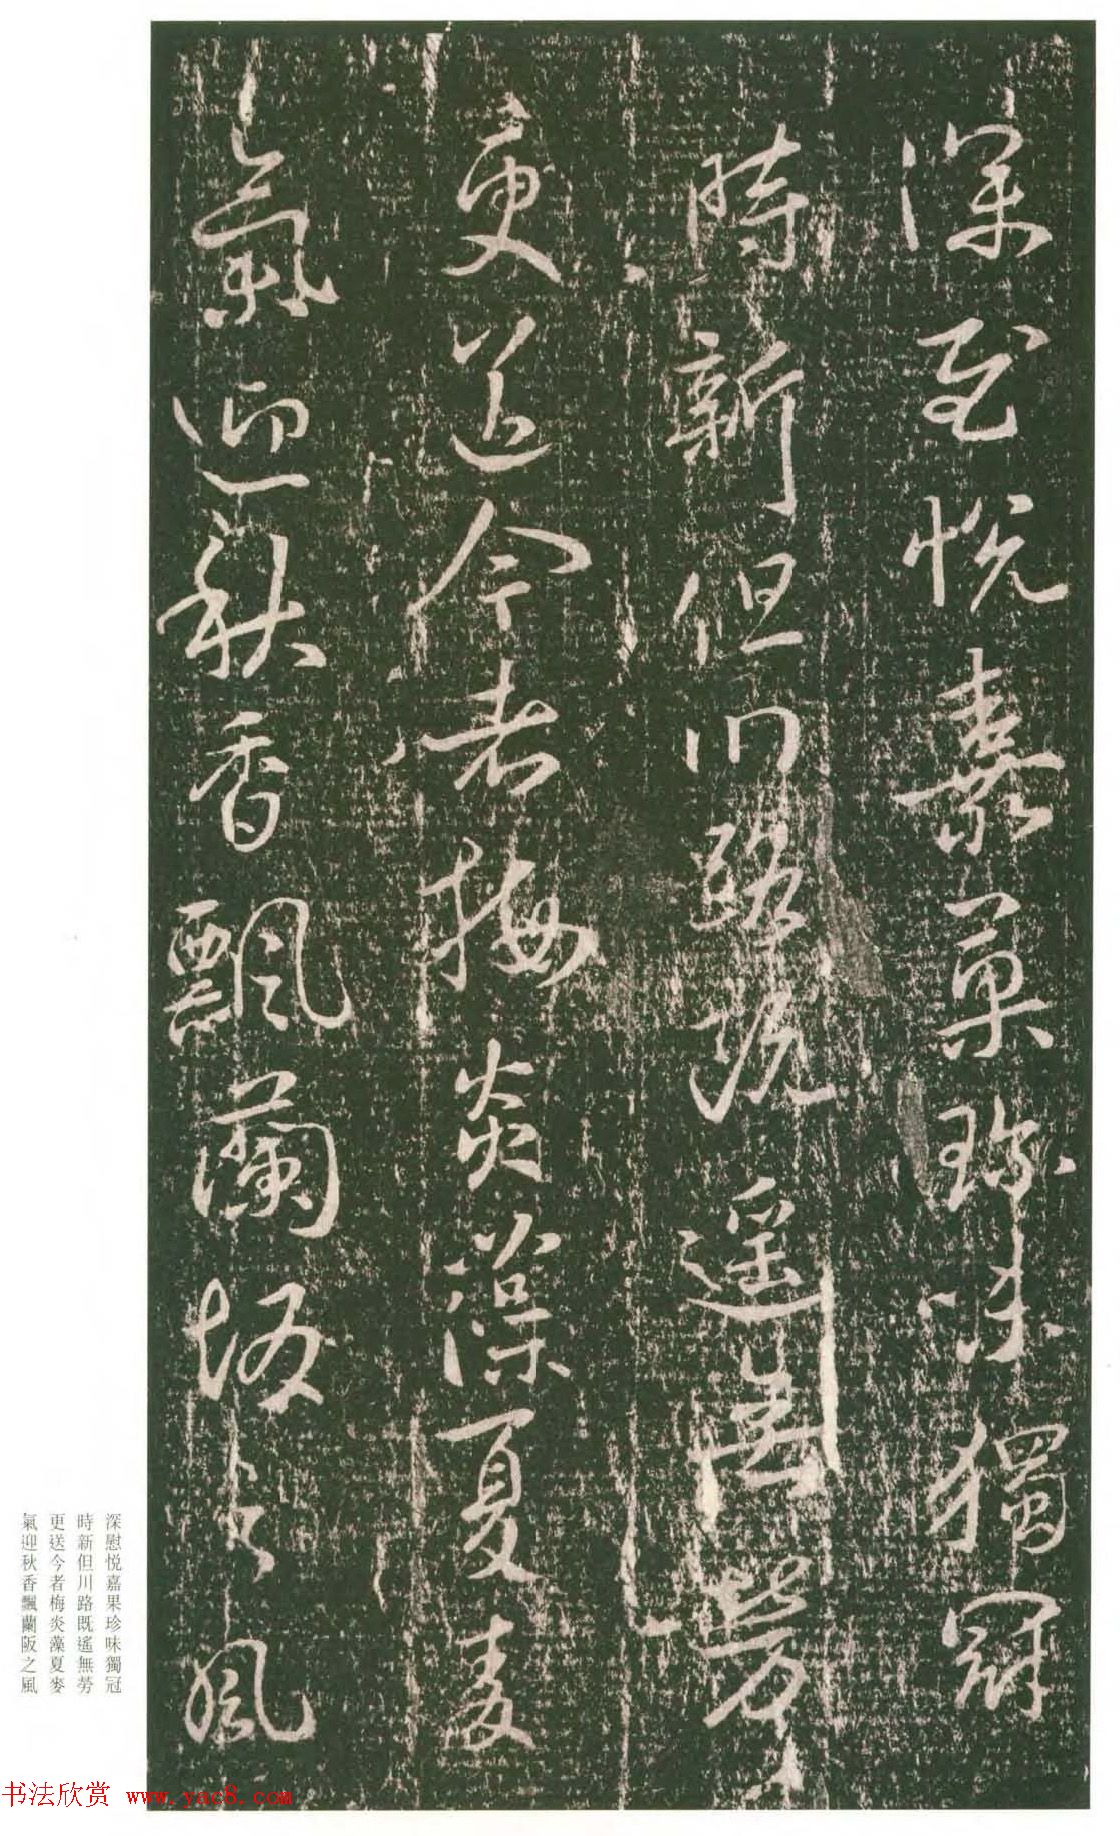 深慰悦嘉果珍味獨冠
時新但川路既遙無勞
更送今者梅炎藻夏麥
氣迎秋香飄蘭阪之風
深慰悦嘉果珍味獨冠
時新但川路既遙無勞
更送今者梅炎藻夏麥
氣迎秋香飄蘭阪之風
书法欣赏 www.yac8.com